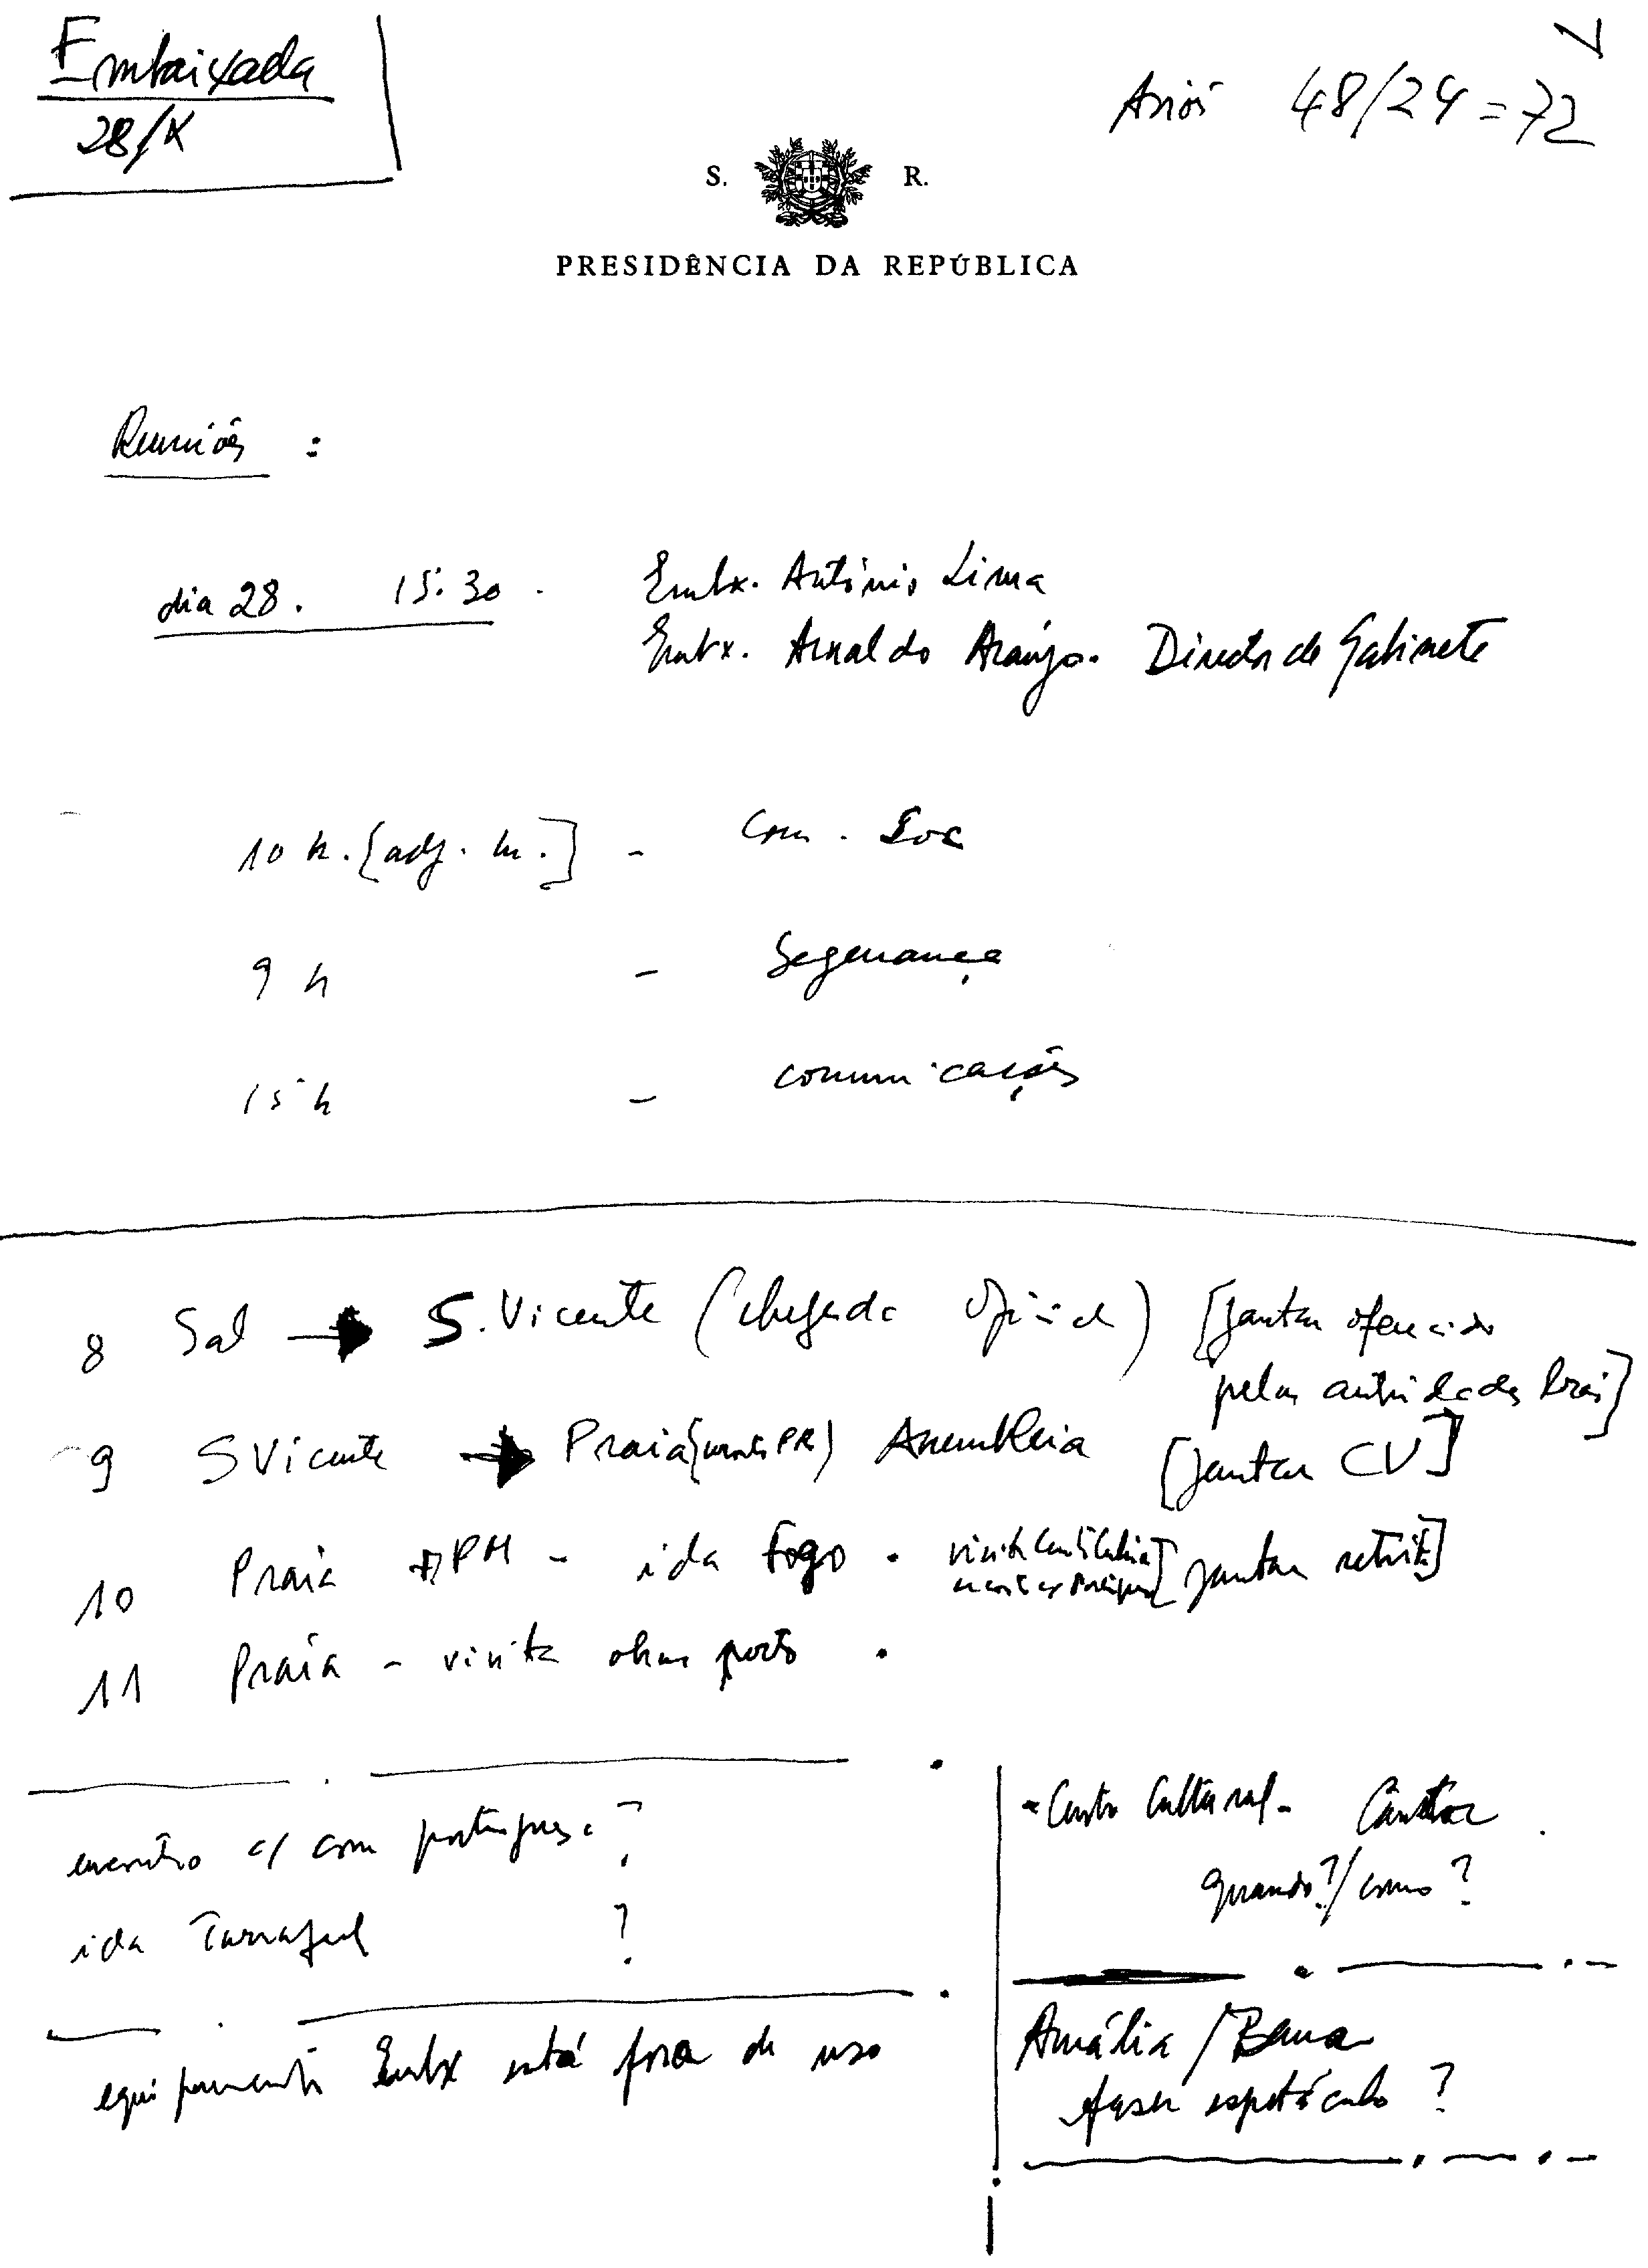 Embaixada
28/X
48/24 = 72
S. R.
PRESIDÊNCIA DA REPÚBLICA
Reuniões :
dia 28. 15:30 - Embx. António Lima
Embx. Arnaldo Araújo. Director de Gabinete
10 h. [adj. m.] - Com. Soc
9 h - Segurança
15 h - comunicações
8 Sal → S. Vicente (chegada oficial) [jantar oferecido
pelas autoridades locais]
9 S Vicente → Praia PR) Assembleia [jantar CV]
10 Praia PM - ida Fogo . visita [jantar retrib]
11 Praia - visita obras porto .
encontro c/ com portuguesa ?
ida Tarrafal ?
equipamento Embx está fora de uso
- Centro Cultural -
quando?/como?
Amália / Bana
fazer espetáculo ?